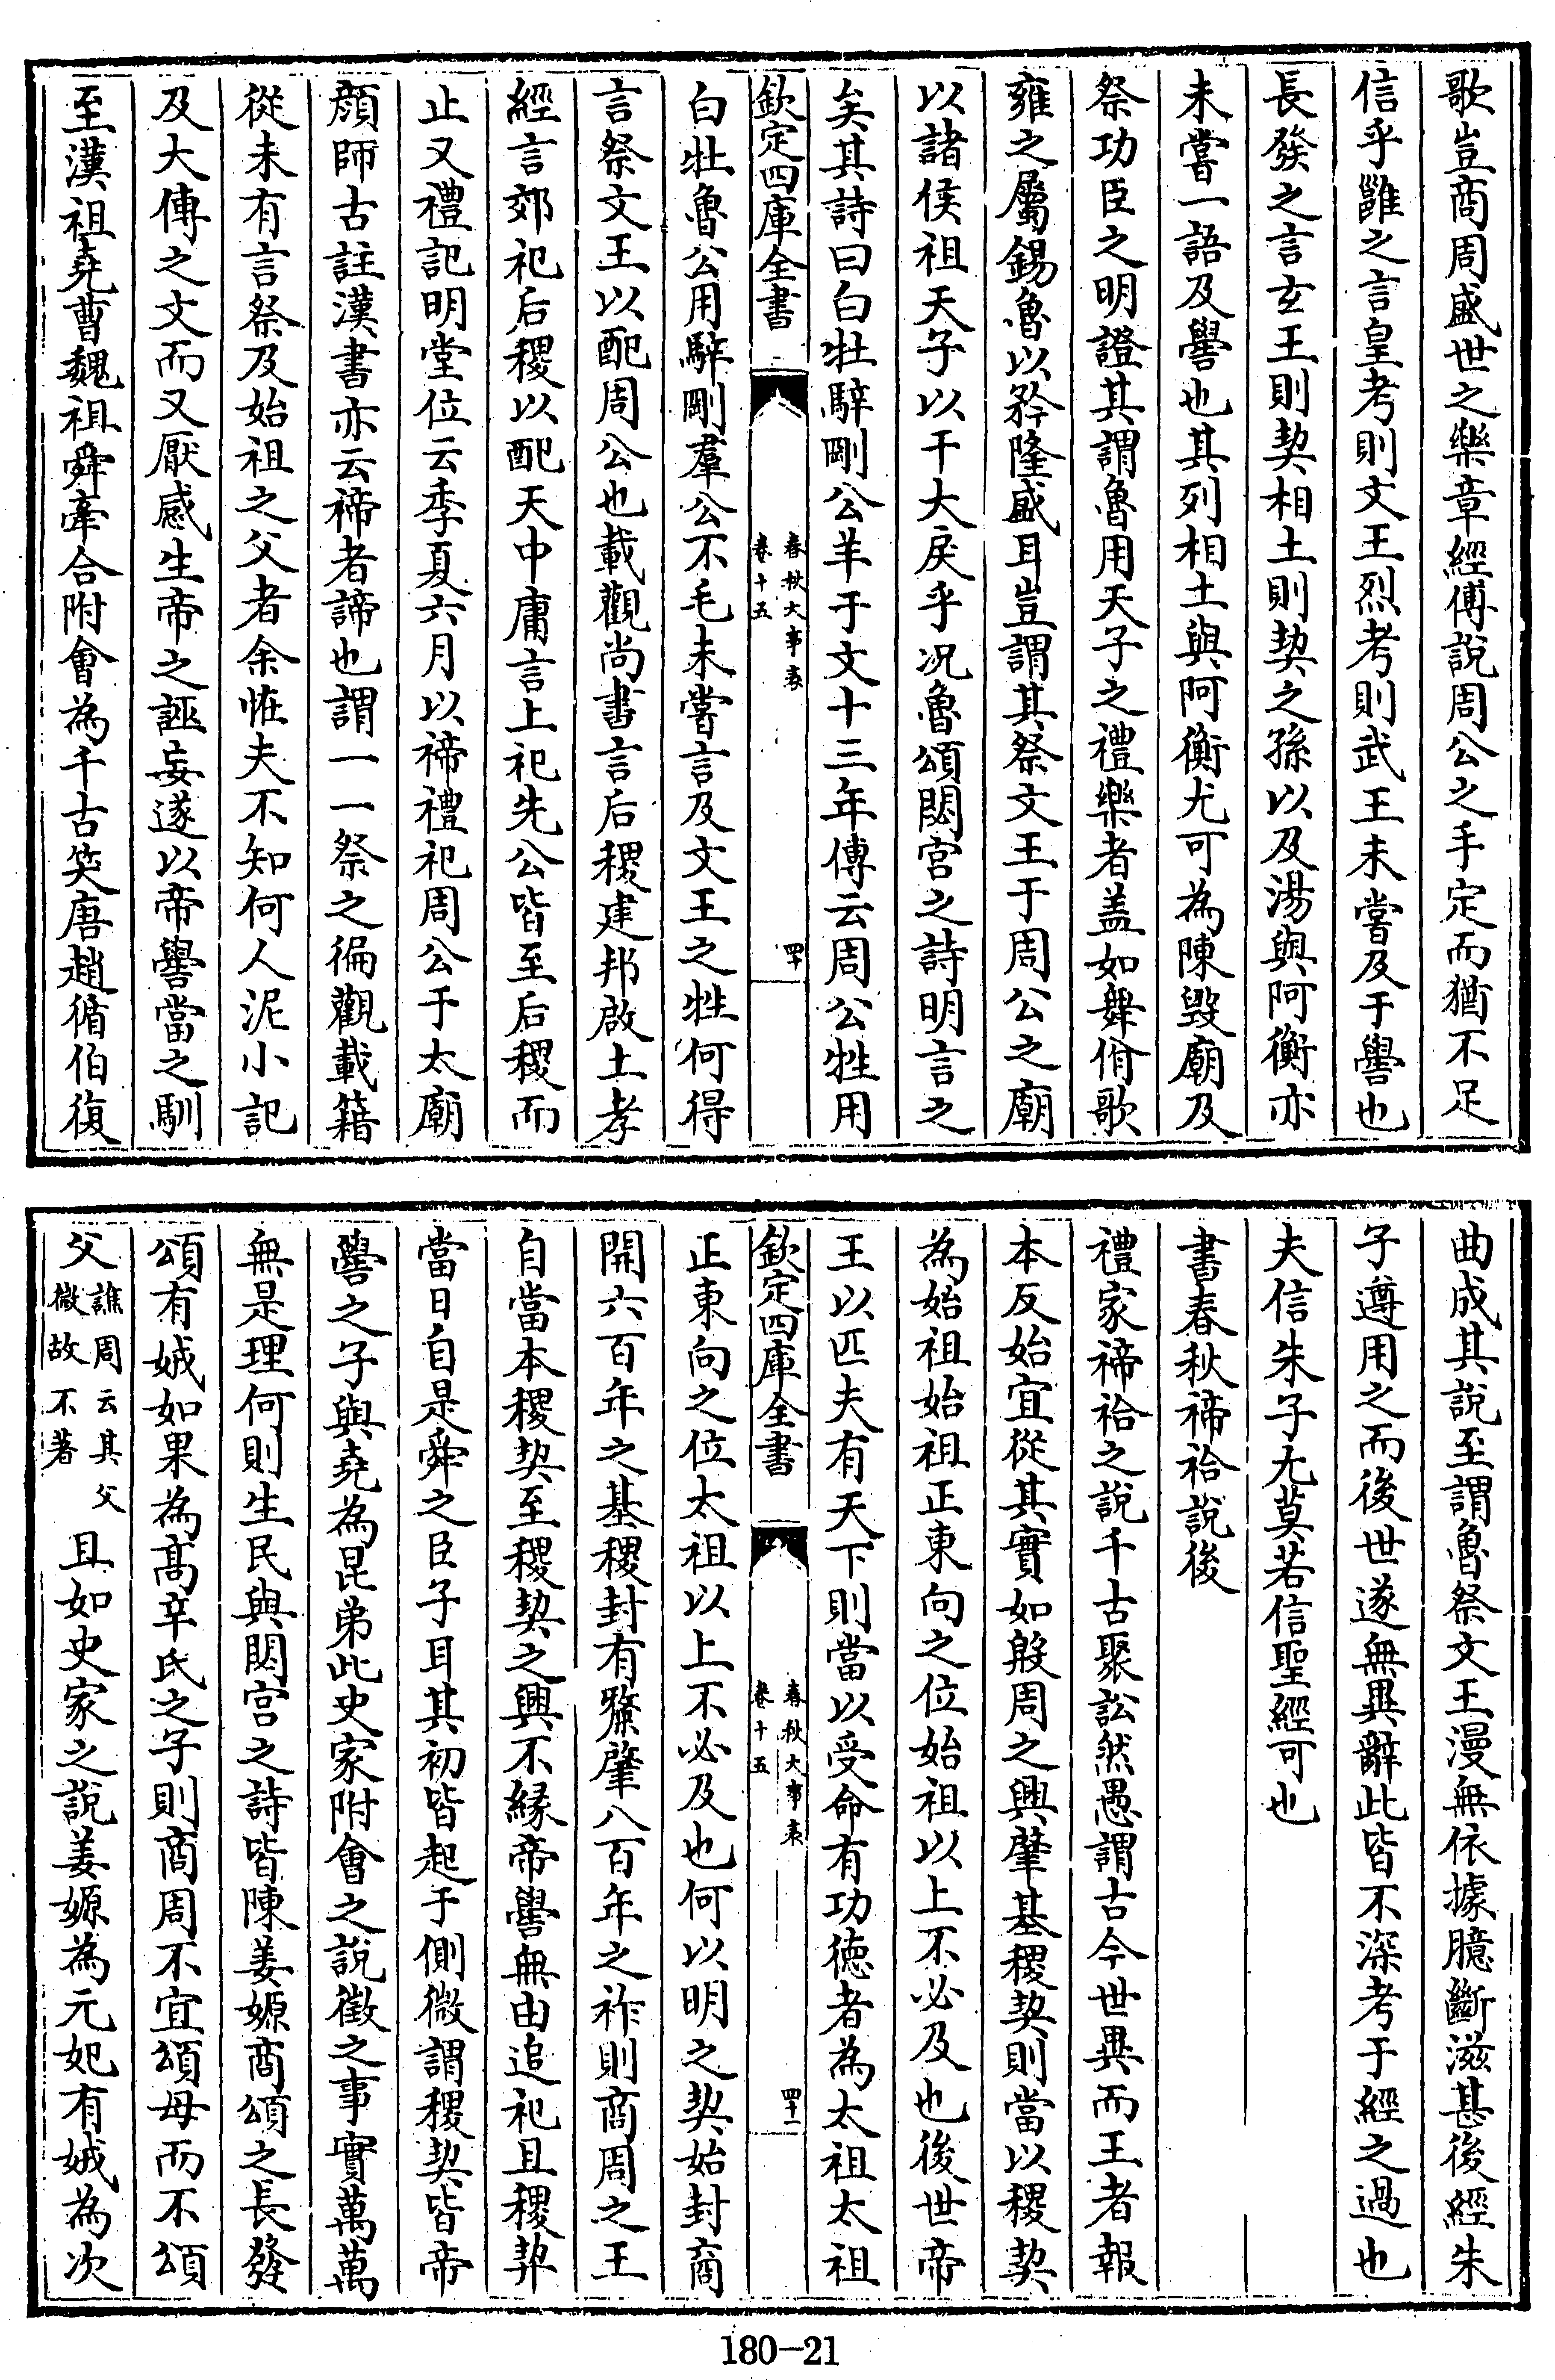 歌豈商周盛世之樂章經傅說周公之手定而猶不足
信乎雝之言皇考則文王烈考則武王未嘗及于嚳也
長發之言玄王則契相土則契之孫以及湯與阿衡亦
未嘗一語及嚳也其列相土與阿衡尤可為陳毀廟及
祭功臣之明證其謂魯用天子之禮樂者盖如舞佾歌
雍之屬錫魯以矜隆盛耳豈謂其祭文王于周公之廟
以諸侯祖天子以干大戾乎况魯頌閟宫之詩明言之
矣其詩曰白牡騂剛公羊于文十三年傅云周公牲用
欽定四庫全書
春秋大事表
卷十五
四十
白牡魯公用騂剛羣公不毛未嘗言及文王之牲何得
言祭文王以配周公也載觀尚書言后稷建邦啟土孝
經言郊祀后稷以配天中庸言上祀先公皆至后稷而
止又禮記明堂位云季夏六月以禘禮祀周公于太廟
顔師古註漢書亦云禘者諦也謂一一祭之徧觀載籍
從未有言祭及始祖之父者余恠夫不知何人泥小記
及大傳之文而又厭感生帝之誣妄遂以帝嚳當之馴
至漢祖堯曹魏祖舜牽合附會為千古笑唐趙循伯復
曲成其說至謂魯祭文王漫無依據臆斷滋甚後經朱
子遵用之而後世遂無異辭此皆不深考于經之過也
夫信朱子尢莫若信聖經可也
書春秋禘祫說後
禮家禘祫之說千古聚訟然愚謂古今世異而王者報
本反始宜從其實如殷周之興肇基稷契則當以稷契
為始祖始祖正東向之位始祖以上不必及也後世帝
王以匹夫有天下則當以受命有功德者為太祖太祖
欽定四庫全書
春秋大事表
卷十五
四十一
正東向之位太祖以上不必及也何以明之契始封商
開六百年之基稷封有斄肇八百年之祚則商周之王
自當本稷契至稷契之興不緣帝嚳無由追祀且稷契
當日自是舜之臣子耳其初皆起于側微謂稷契皆帝
嚳之子與堯為昆弟此史家附會之說徵之事實萬萬
無是理何則生民與閟宫之詩皆陳姜嫄商頌之長發
頌有娀如果為髙辛氏之子則商周不宜頌母而不頌
父譙周云其父微故不著且如史家之說姜嫄為元妃有娀為次
180-21